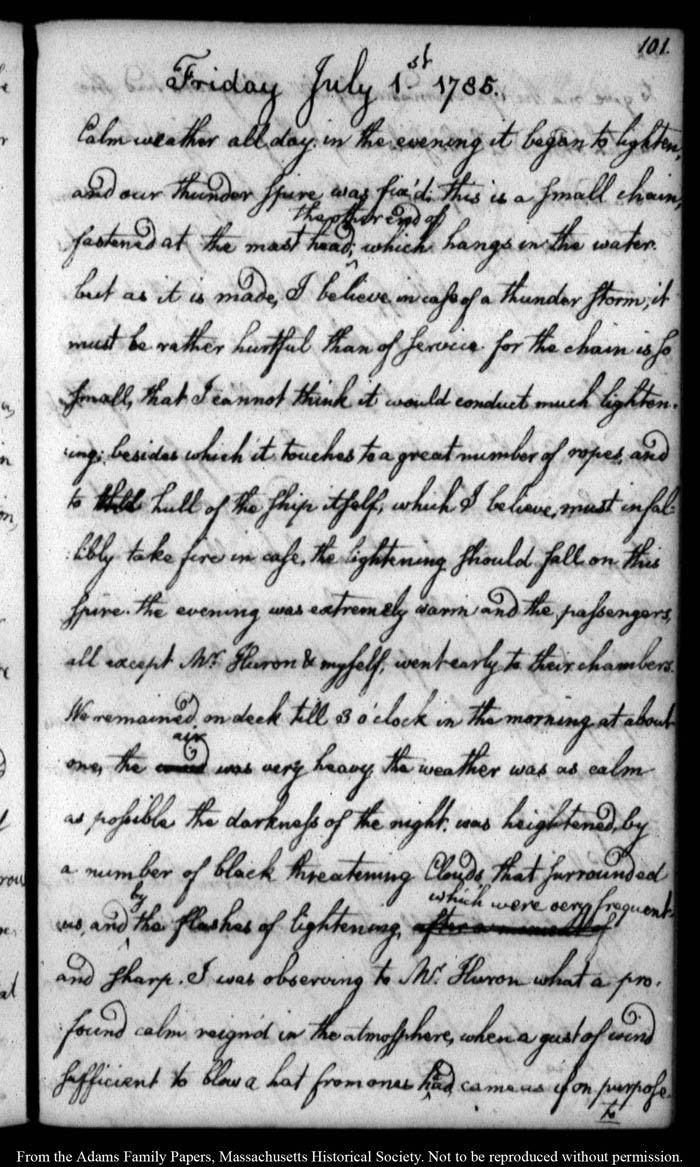 101.
Friday July 1st 1785.
Calm weather all day. in the evening it began to lighten,
and our thunder spire was fix'd; this is a small chain,
the other end of
fastened at the mast head; which hangs in the water.
but as it is made, I believe in case of a thunder storm, it
must be rather hurtful than of service. for the chain is so
small, that I cannot think it would conduct much lighten-
:ing; besides which it touches to a great number of ropes, and
to hull of the ship itself, which I believe, must infal-
:libly take fire in case, the lightening should fall on this
spire. the evening was extremely warm and the passengers,
all except Mr. Huron & myself, went early to their chambers.
We remained, on deck till 3 o'clock in the morning at about
air
one, the wind was very heavy, the weather was as calm
as possible the darkness of the night, was heightened, by
a number of black threatening Clouds that surrounded
by which were very frequent
us, and the flashes of lightening, after a minute of
and sharp. I was observing to Mr. Huron what a pro-
:found calm reign'd in the atmosphere, when a gust of wind
sufficient to blow a hat from ones head, came as if on purpose
to
From the Adams Family Papers, Massachusetts Historical Society. Not to be reproduced without permission.